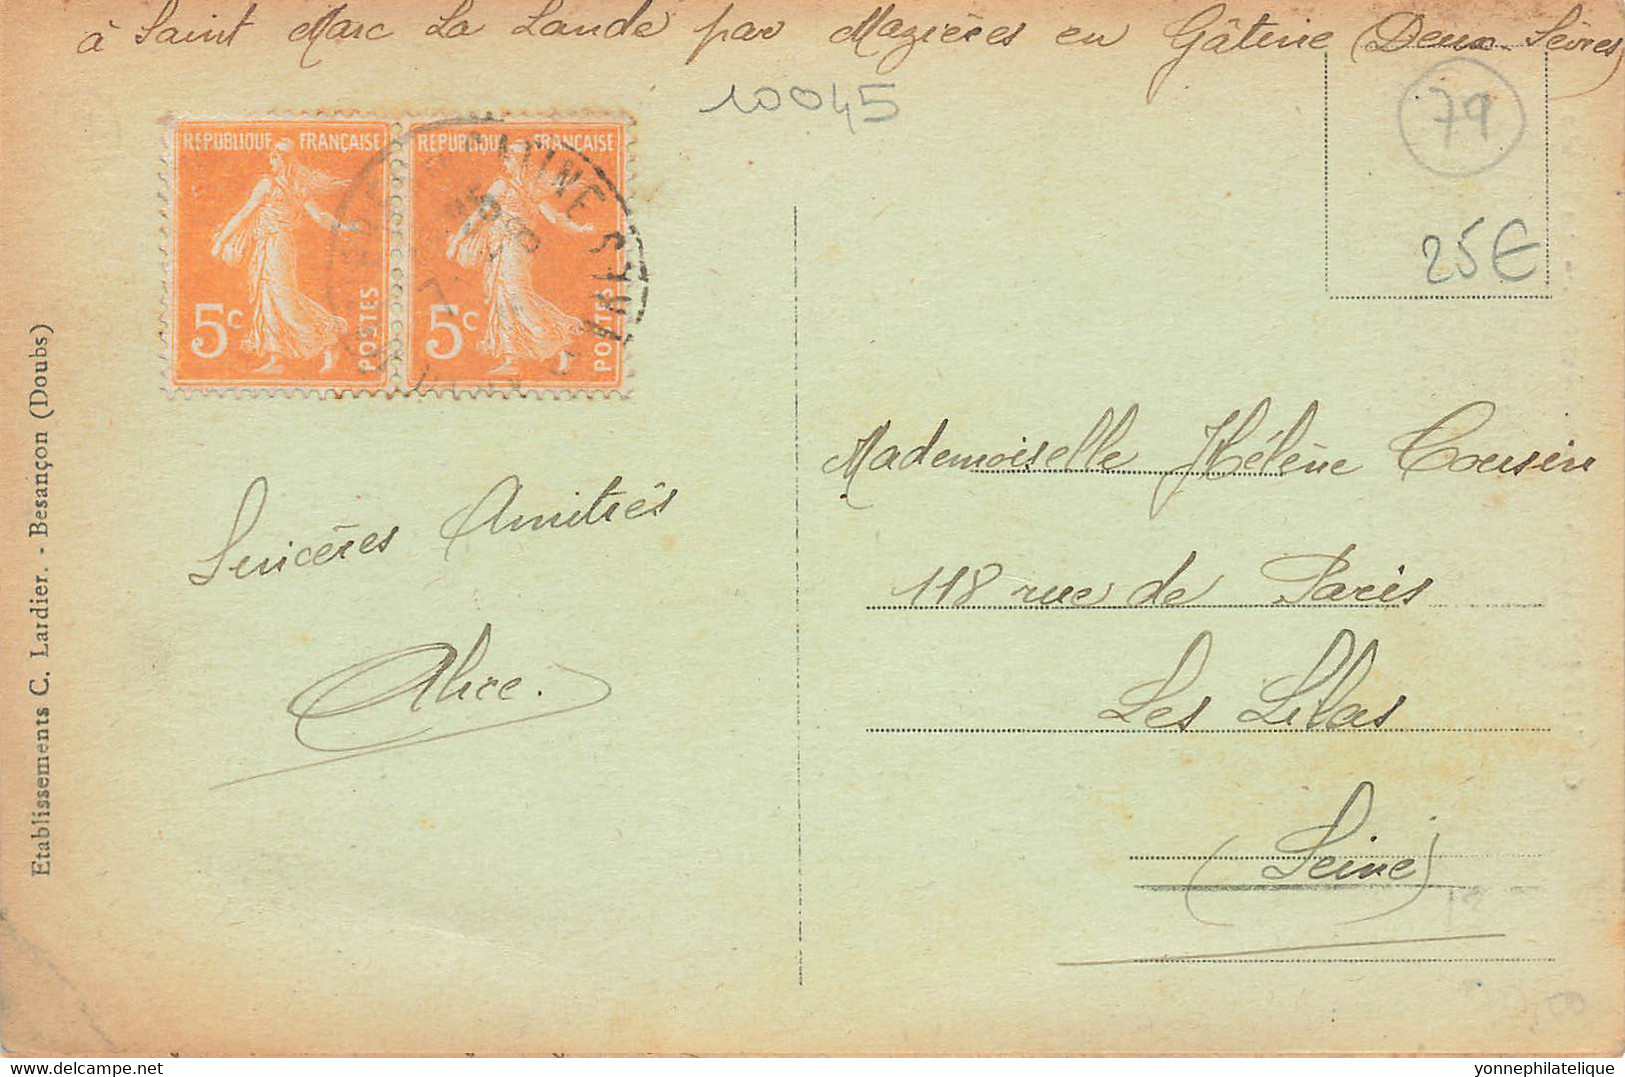 à Saint Marc La Lande par Mazières en Gâtine (Deux-Sèvres)
10045
79
25€
REPUBLIQUE FRANÇAISE
5c
POSTES
REPUBLIQUE FRANÇAISE
5c
POSTES
Sincères Amitiés
Alice.
Mademoiselle Hélène Cousin
118 rue de Paris
Les Lilas
(Seine)
Etablissements C. Lardier. - Besançon (Doubs)
yonnephilatelique